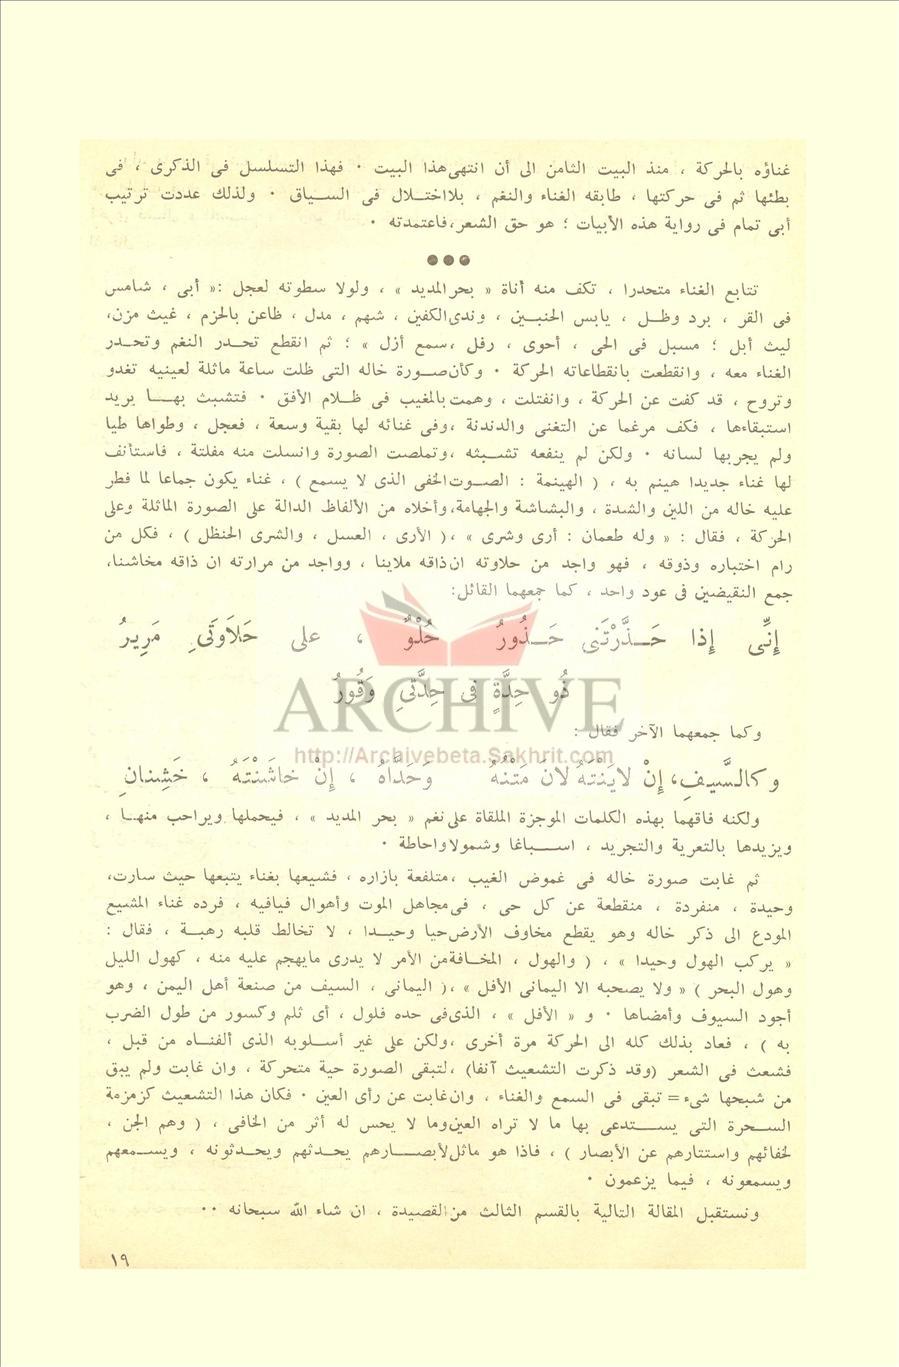 غناؤه بالحركة ، منذ البيت الثامن الى أن انتهى هذا البيت · فهذا التسلسل فى الذكرى ، فى
بطئها ثم فى حركتها ، طابقه الغناء والنغم ، بلا اختــلال فى الســياق · ولذلك عددت ترتيب
أبى تمام فى رواية هذه الأبيات ؛ هو حق الشعر،فاعتمدته ·
●●●
تتابع الغناء متحدرا ، تكف منه أناة « بحر المديد » ، ولولا سطوته لعجل :« أبى ، شامس
فى القر ، برد وظــل ، يابس الجنبــين ، وندى الكفين ، شهم ، مدل ، ظاعن بالحزم ، غيث مزن،
ليث أبل ؛ مسبل فى الحى ، أحوى ، رفل ،سمع أزل » ؛ ثم انقطع تحــدر النغم وتحــدر
الغناء معه ، وانقطعت بانقطاعاته الحركة · وكأن صــورة خاله التى ظلت ساعة ماثلة لعينيه تغدو
وتروح ، قد كفت عن الحركة ، وانفتلت ، وهمت بالمغيب فى ظــلام الأفق · فتشبث بهــا يريد
استبقاءها ، فكف مرغما عن التغنى والدندنة ،وفى غنائه لها بقية وسعة ، فعجل ، وطواها طيا
ولم يجر بها لسانه · ولكن لم ينفعه تشــبثه ،وتملصت الصورة وانسلت منه مفلتة ، فاستأنف
لها غناء جديدا هينم به ، ( الهينمة : الصــوت الخفى الذى لا يسمع ) ، غناء يكون جماعا لما فطر
عليه خاله من اللين والشدة ، والبشاشة والجهامة،وأخلاه من الألفاظ الدالة على الصورة الماثلة وعلى
الحركة ، فقال : « وله طعمان : أرى وشرى » ،( الأرى ، العسل ، والشرى الحنظل ) ، فكل من
رام اختباره وذوقه ، فهو واجد من حلاوته ان ذاقه ملاينا ، وواجد من مرارته ان ذاقه مخاشنا،
جمع النقيضين فى عود واحد ، كما جمعهما القائل:
إِنِّى إِذا حَــذَّرْتَنى حَــذُورُ حُلْوٌ ، على حَلاَوَتى ِ مَرِيرُ
ذُو حِدَّةٍ فى حِدَّتى ِ وَقُورُ
ARCHIVE
وكما جمعهما الآخر فقال :
http://Archivebeta.Sakhrit.com
وكالسَّيفِ، إِنْ لاينْتَهُ لانَ مَتْنُهُ وَحَدَّاهُ ، إِنْ خاشَنْتَهُ ، خَشِنانِ
ولكنه فاقهما بهذه الكلمات الموجزة الملقاة على نغم « بحر المديد » ، فيحملها ويراحب منهــا ،
ويزيدها بالتعرية والتجريد ، اســباغا وشمولا واحاطة ·
ثم غابت صورة خاله فى غموض الغيب ،متلفعة بازاره ، فشيعها بغناء يتبعها حيث سارت،
وحيدة ، منفردة ، منقطعة عن كل حى ، فى مجاهل الموت وأهوال فيافيه ، فرده غناء المشيع
المودع الى ذكر خاله وهو يقطع مخاوف الأرض حيا وحيــدا ، لا تخالط قلبه رهبــة ، فقال :
« يركب الهول وحيدا » ، ( والهول ، المخــافة من الأمر لا يدرى ما يهجم عليه منه ، كهول الليل
وهول البحر ) « ولا يصحبه الا اليمانى الأفل » ،( اليمانى ، السيف من صنعة أهل اليمن ، وهو
أجود السيوف وأمضاها · و « الأفل » ، الذى فى حده فلول ، أى ثلم وكسور من طول الضرب
به ) ، فعاد بذلك كله الى الحركة مرة أخرى ،ولكن على غير أســلوبه الذى ألفنــاه من قبل ،
فشعث فى الشعر (وقد ذكرت التشعيث آنفا) ،لتبقى الصورة حية متحركة ، وان غابت ولم يبق
من شبحها شىء = تبقى فى السمع والغناء ، وان غابت عن رأى العين · فكان هذا التشعيث كزمزمة
الســحرة التى يســتدعى بها ما لا تراه العين وما لا يحس له أثر من الخافى ، ( وهم الجن ،
لخفائهم واستتارهم عن الأبصار ) ، فاذا هو ماثل لأبصــارهم يحــدثهم ويحــدثونه ، ويســمعهم
ويسمعونه ، فيما يزعمون ·
ونستقبل المقالة التالية بالقسم الثالث من القصيدة ، ان شاء الله سبحانه ··
١٩